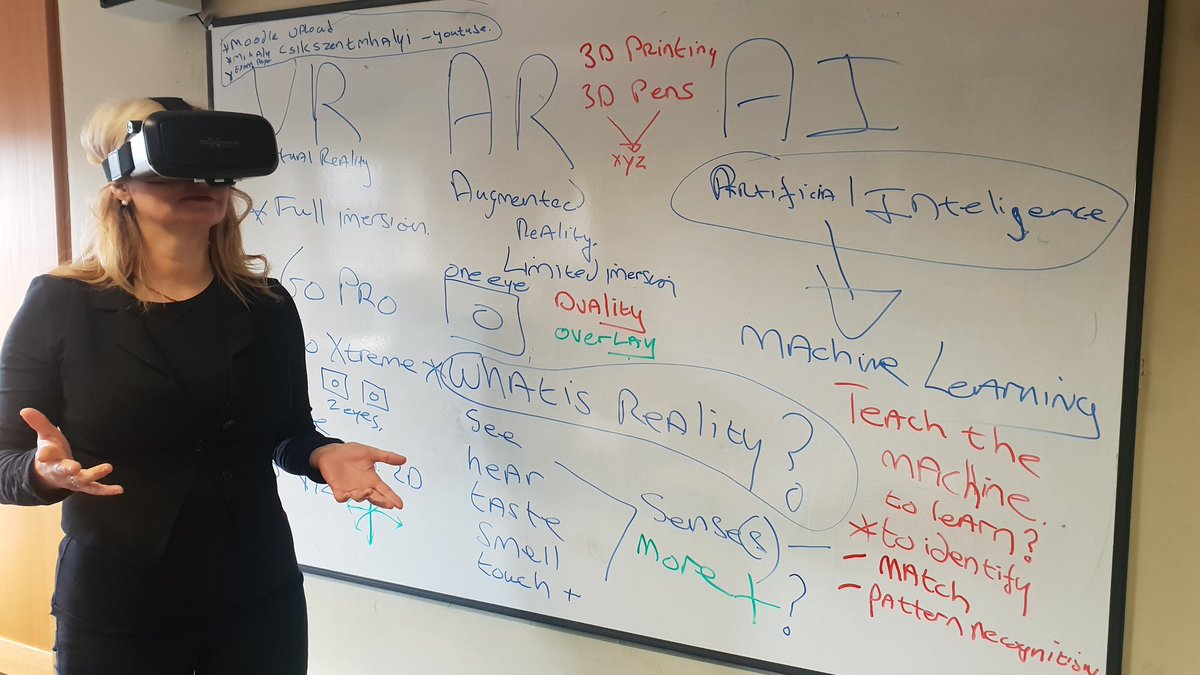 *Moodle Upload
*Mihaly Csikszentmhalyi - youtube.
*Exam Paper
VR
Reality
*Full imersion.
Go PRO
Xtreme
2 eyes.
2D
AR
Augmented
Reality.
Limited imersion
one eye
Duality
overlay
3D Printing
3D Pens
xyz
AI
Artificial Inteligence
Machine Learning
*What is Reality?
See
hear
taste
smell
touch +
Sense(s) -
More + ?
Teach the
machine...
to learn?
*to identify
- Match
- pattern recognition